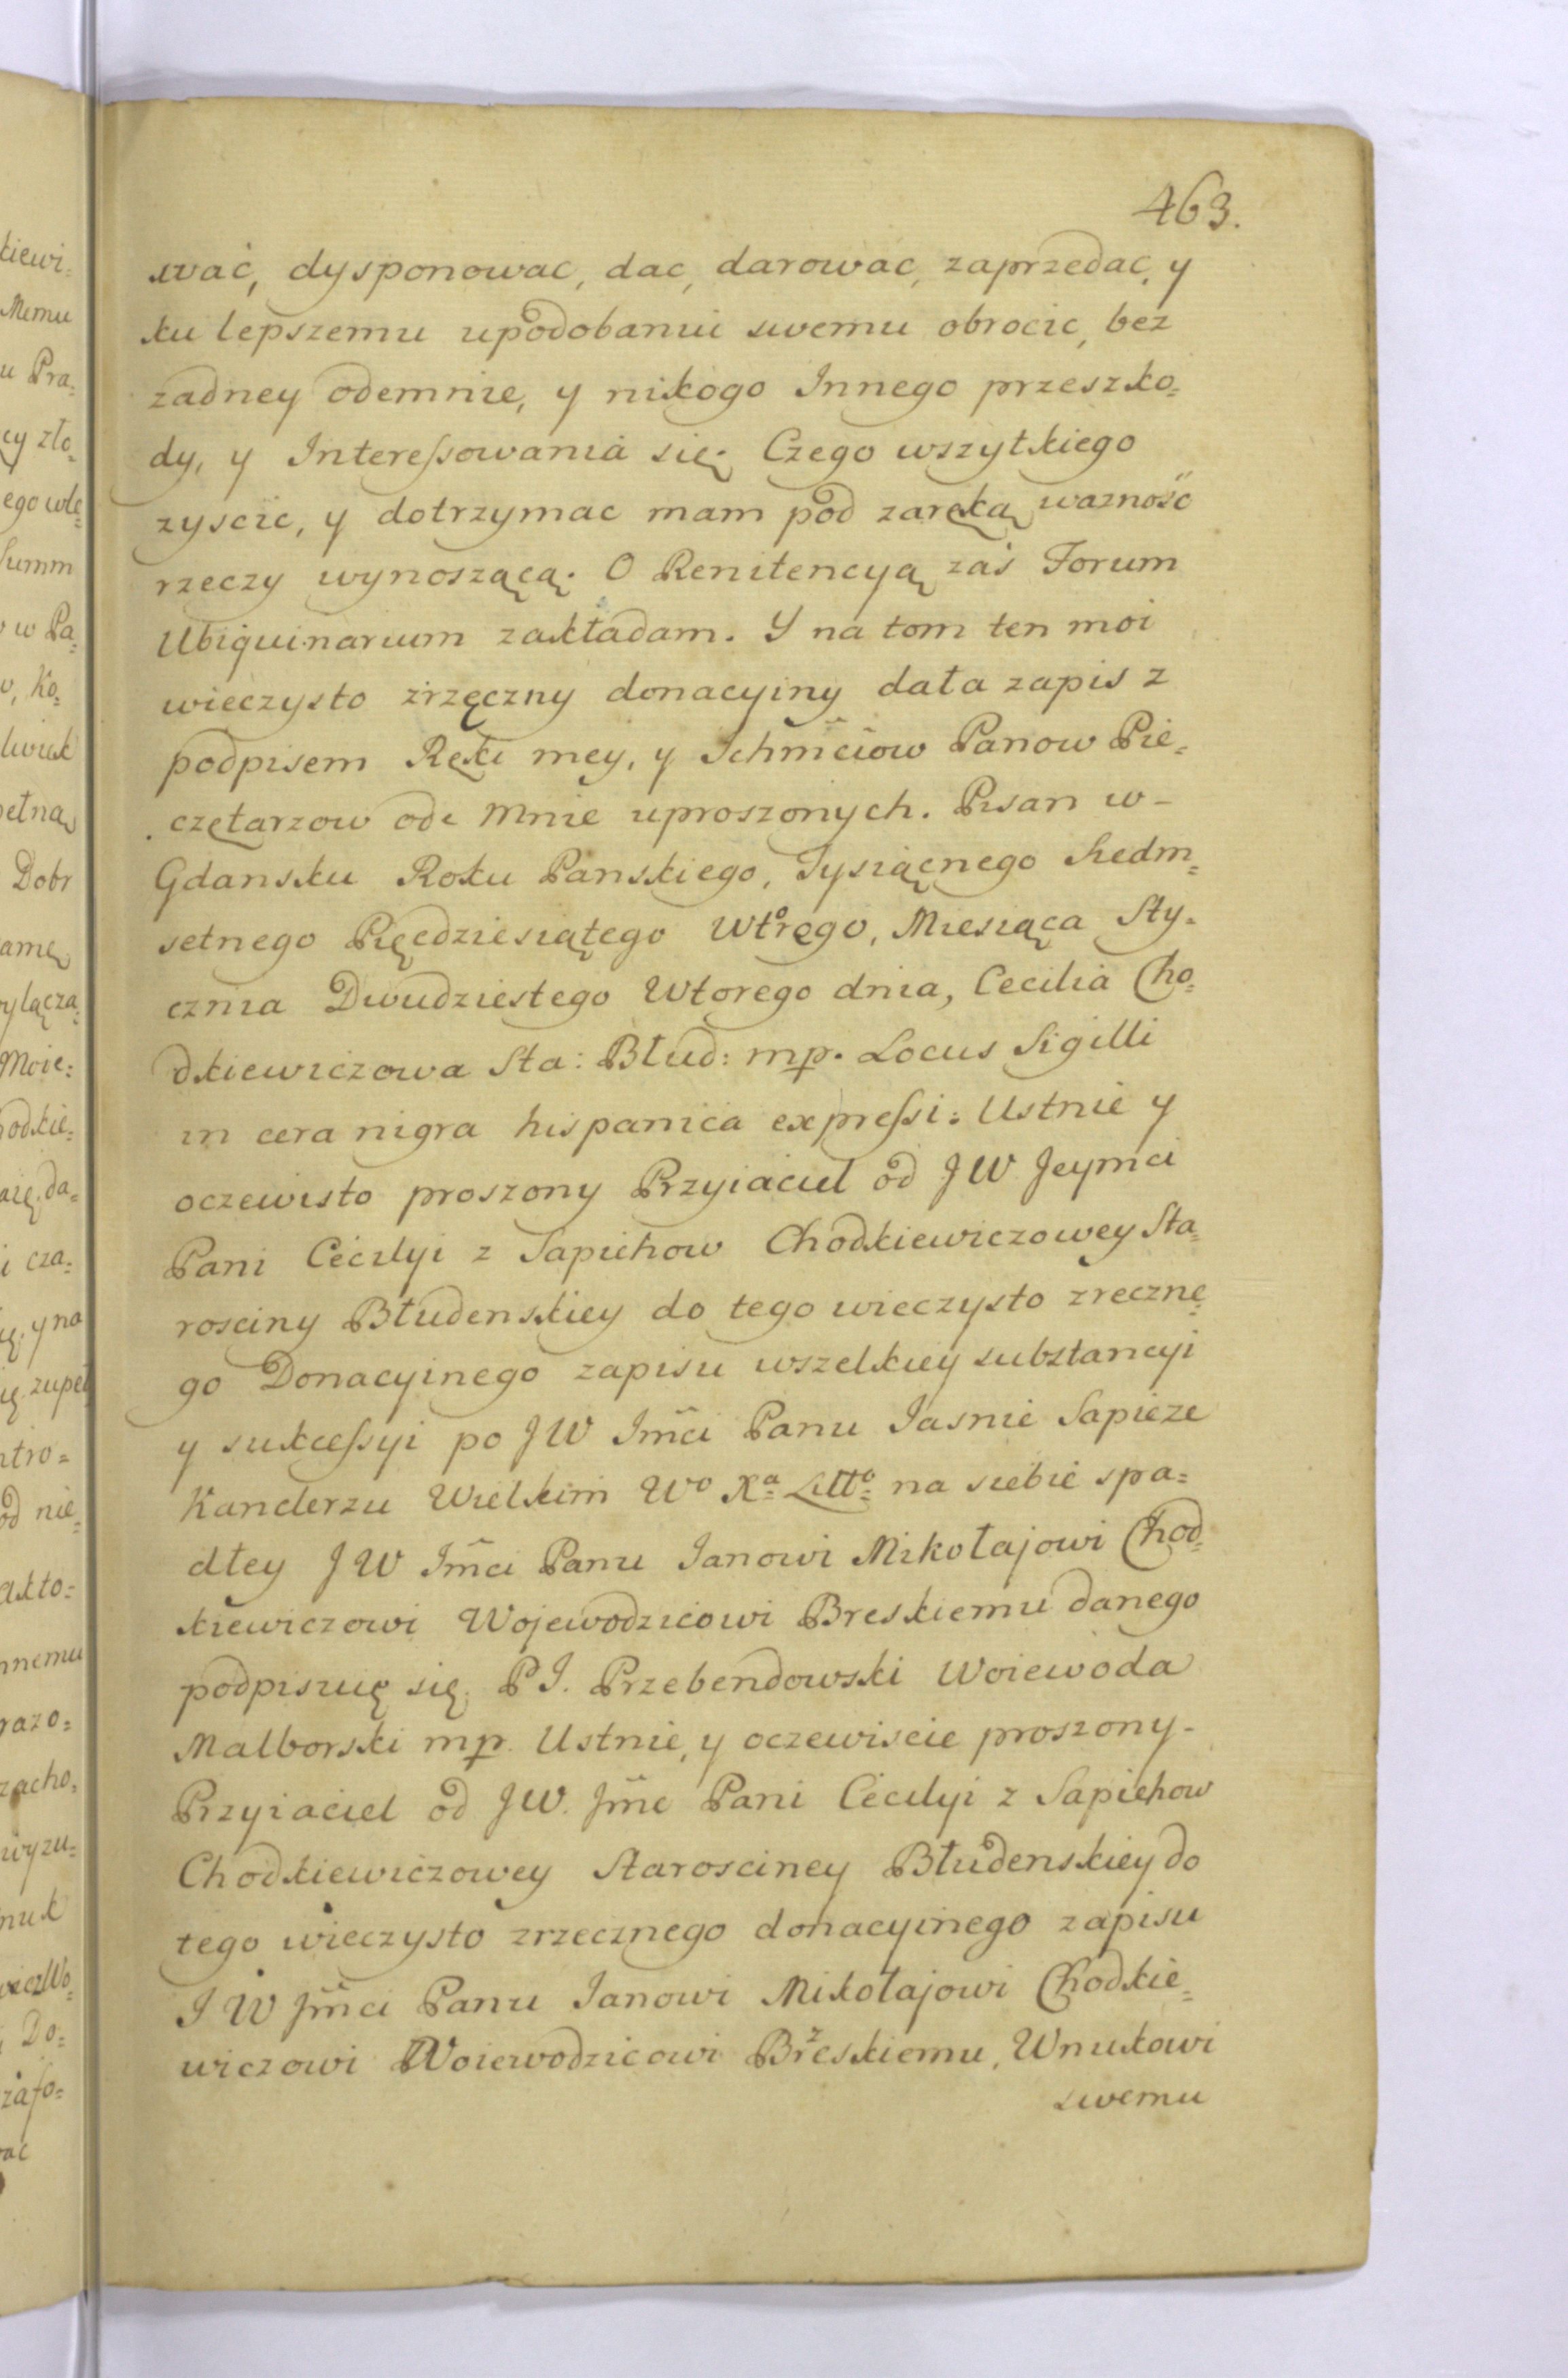 463.
wać, dysponowac, dac, darowac, zaprzedac, y
ku lepszemu upodobaniu swemu obrocic, bez
zadney odemnie, y nikogo Innego przeszko=
dy, y Interessowania się. Czego wszytkiego
zyscic, y dotrzymac mam pod zaręką wazność
rzeczy wynoszącą. O Renitencyą zaś Forum
Ubiquinarium zakładam. Y na tom ten moi
wieczysto zrzęczny donacyiny dała zapis z
podpisem Ręki mey, y Ichmciow Panow Pie=
czętarzow ode Mnie uproszonych. Pisan w-
Gdansku Roku Panskiego, Tysiącnego Siedm=
setnego Pięcdziesiątego Wtorego, Miesiąca Sty=
cznia Dwudziestego Wtorego dnia, Cecilia Cho=
dkiewiczowa Sta: Błud: mp. Locus Sigilli
in cera nigra hispanica expressi: Ustnie y
oczewisto proszony Przyiaciel od J W Jeymci
Pani Cecilyi z Sapiehow Chodkiewiczowey Sta=
rosciny Błudenskiey do tego wieczysto zreczne=
go Donacyinego zapisu wszelkiey substancyi
y sukcessyi po J W Imci Panu Iasnie Sapieze
Kanclerzu Wielkim Wo Xa Litto na siebie spa=
dłey J W Imci Panu Ianowi Mikołajowi Chod=
kiewiczowi Wojewodzicowi Breskiemu danego
podpisuię się. P J. Przebendowski Woiewoda
Malborski mp. Ustnie, y oczewiscie proszony-
Przyiaciel od J W. Jmc Pani Cecilyi z Sapiehow
Chodkiewiczowey Starosciney Błudenskiey do
tego wieczysto zrzecznego donacyinego zapisu
J W Jmci Panu Ianowi Mikołajowi Chodkie=
wiczowi Woiewodzicowi Brzeskiemu, Wnukowi
swemu